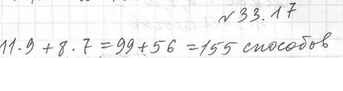 №33.17
11·9+8·7=99+56=155 способов